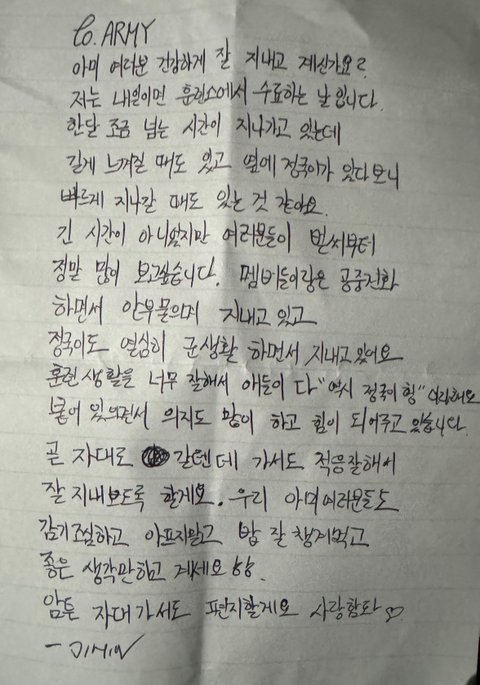 to. ARMY
아미 여러분 건강하게 잘 지내고 계신가요?
저는 내일이면 훈련소에서 수료하는 날입니다.
한달 조금 넘는 시간이 지나가고 있는데
길게 느껴질 때도 있고 옆에 정국이가 있다보니
빠르게 지나갈 때도 있는 것 같아요.
긴 시간이 아니였지만 여러분들이 벌써부터
정말 많이 보고싶습니다. 멤버들이랑은 공중전화
하면서 안부물으며 지내고 있고
정국이도 열심히 군생활 하면서 지내고있어요
훈련생활을 너무 잘해서 애들이 다 "역시 정국이 형" 이래요
붙어 있으면서 의지도 많이 하고 힘이 되어주고 있습니다.
곧 자대로 갈텐데 가서도 적응잘해서
잘 지내보도록 할게요. 우리 아미여러분들도
감기조심하고 아프지말고 밥 잘 챙겨먹고
좋은 생각만하고 계세요 ㅎㅎ.
암튼 자대가서도 편지할게요 사랑함다♡
- JIMIN